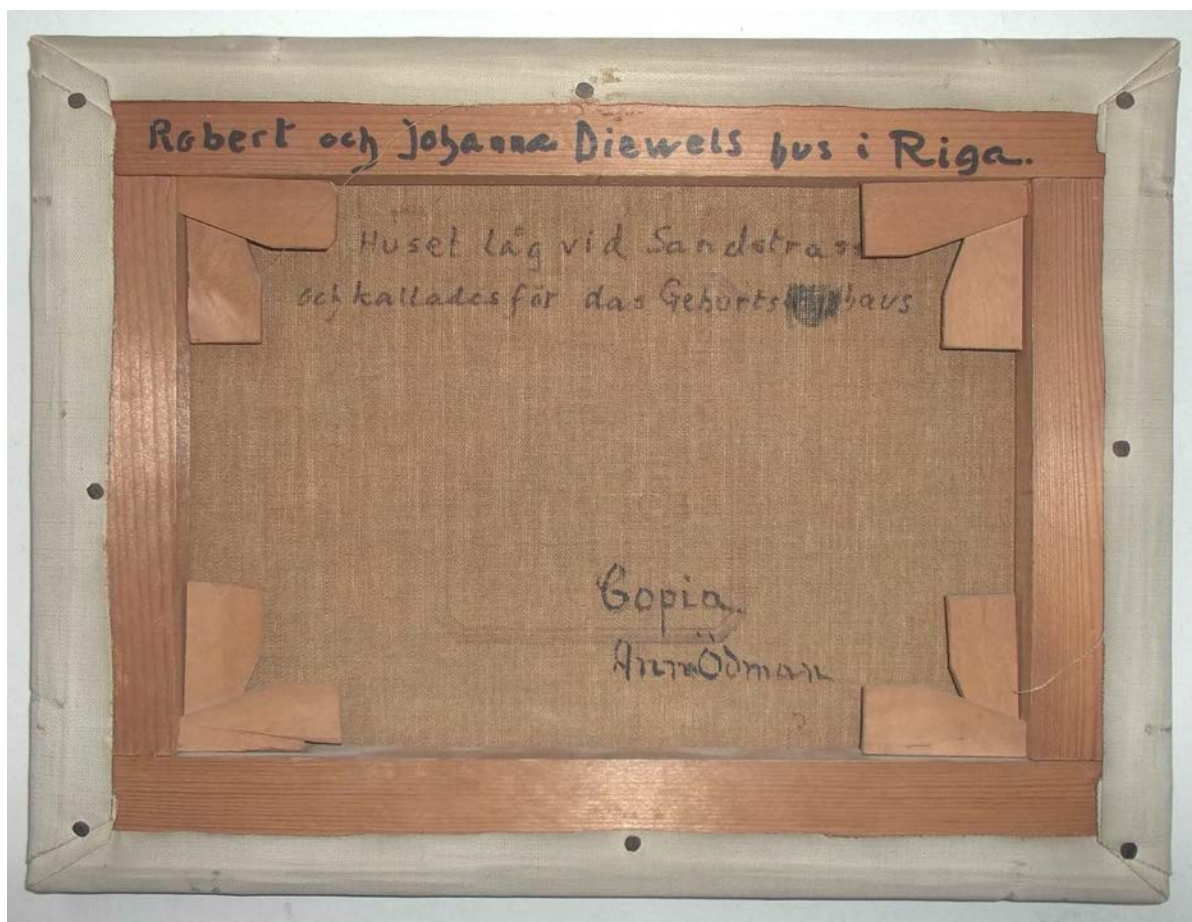 Robert och Johanna Diewels hus i Riga.
Huset låg vid Sandstrass
och kallades för das Geburtshaus
Copia
Ann Ödman